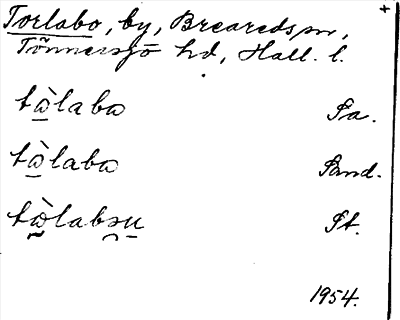 +
Torlabo, by, Breareds sn,
Tönnersjö hd, Hall. l.
tòlaba Sa.
tòlaba Sand.
tòlabəu St.
1954.